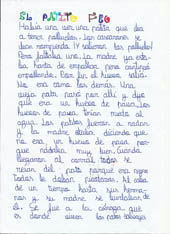 EL PATITO FEO
Había una vez una patita que iba
a tener patitos. Los cascarones se
iban rompiendo y salieron los patitos
Pero faltaba uno. La madre ya esta
ba harta de empollar pero continuó
empollando. Por fin el huevo salió.
No era como los demás. Una
vieja pata pasó por allí y dijo
que era un huevo de pava. los
huevos de pava tenían miedo al
agua. Los patitos fueron a nadar
y la madre estaba diciendo que
no era un huevo de pava, por-
que nadaba muy bien. Cuando
llegaron al corral todos se
reían del pato porque era
todos le daban picotazos. Al cabo
de un tiempo hasta sus herma-
nos y su madre se burlaban de
él. Se fue a la ciénaga que
es donde viven los patos salvajes